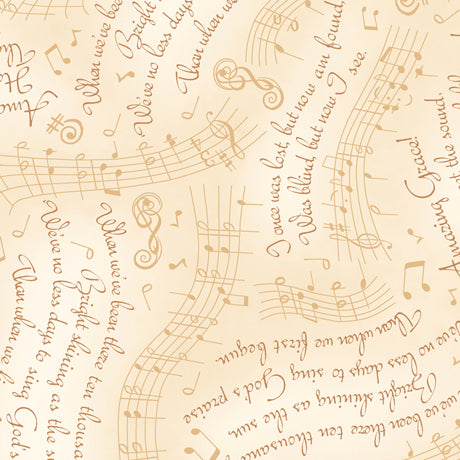 When we've bee
Bright
We've no less days
Than when w
I once was lost, but now am found,
Was blind, but now I see.
Amazing Grace!
et the sound,
When we've been there ten thousa
Bright shining as the s
We've no less days to sing God's
Than when we fi
we've been there ten thousand
Bright shining as the sun,
ve no less days to sing God's praise
Than when we first begun.